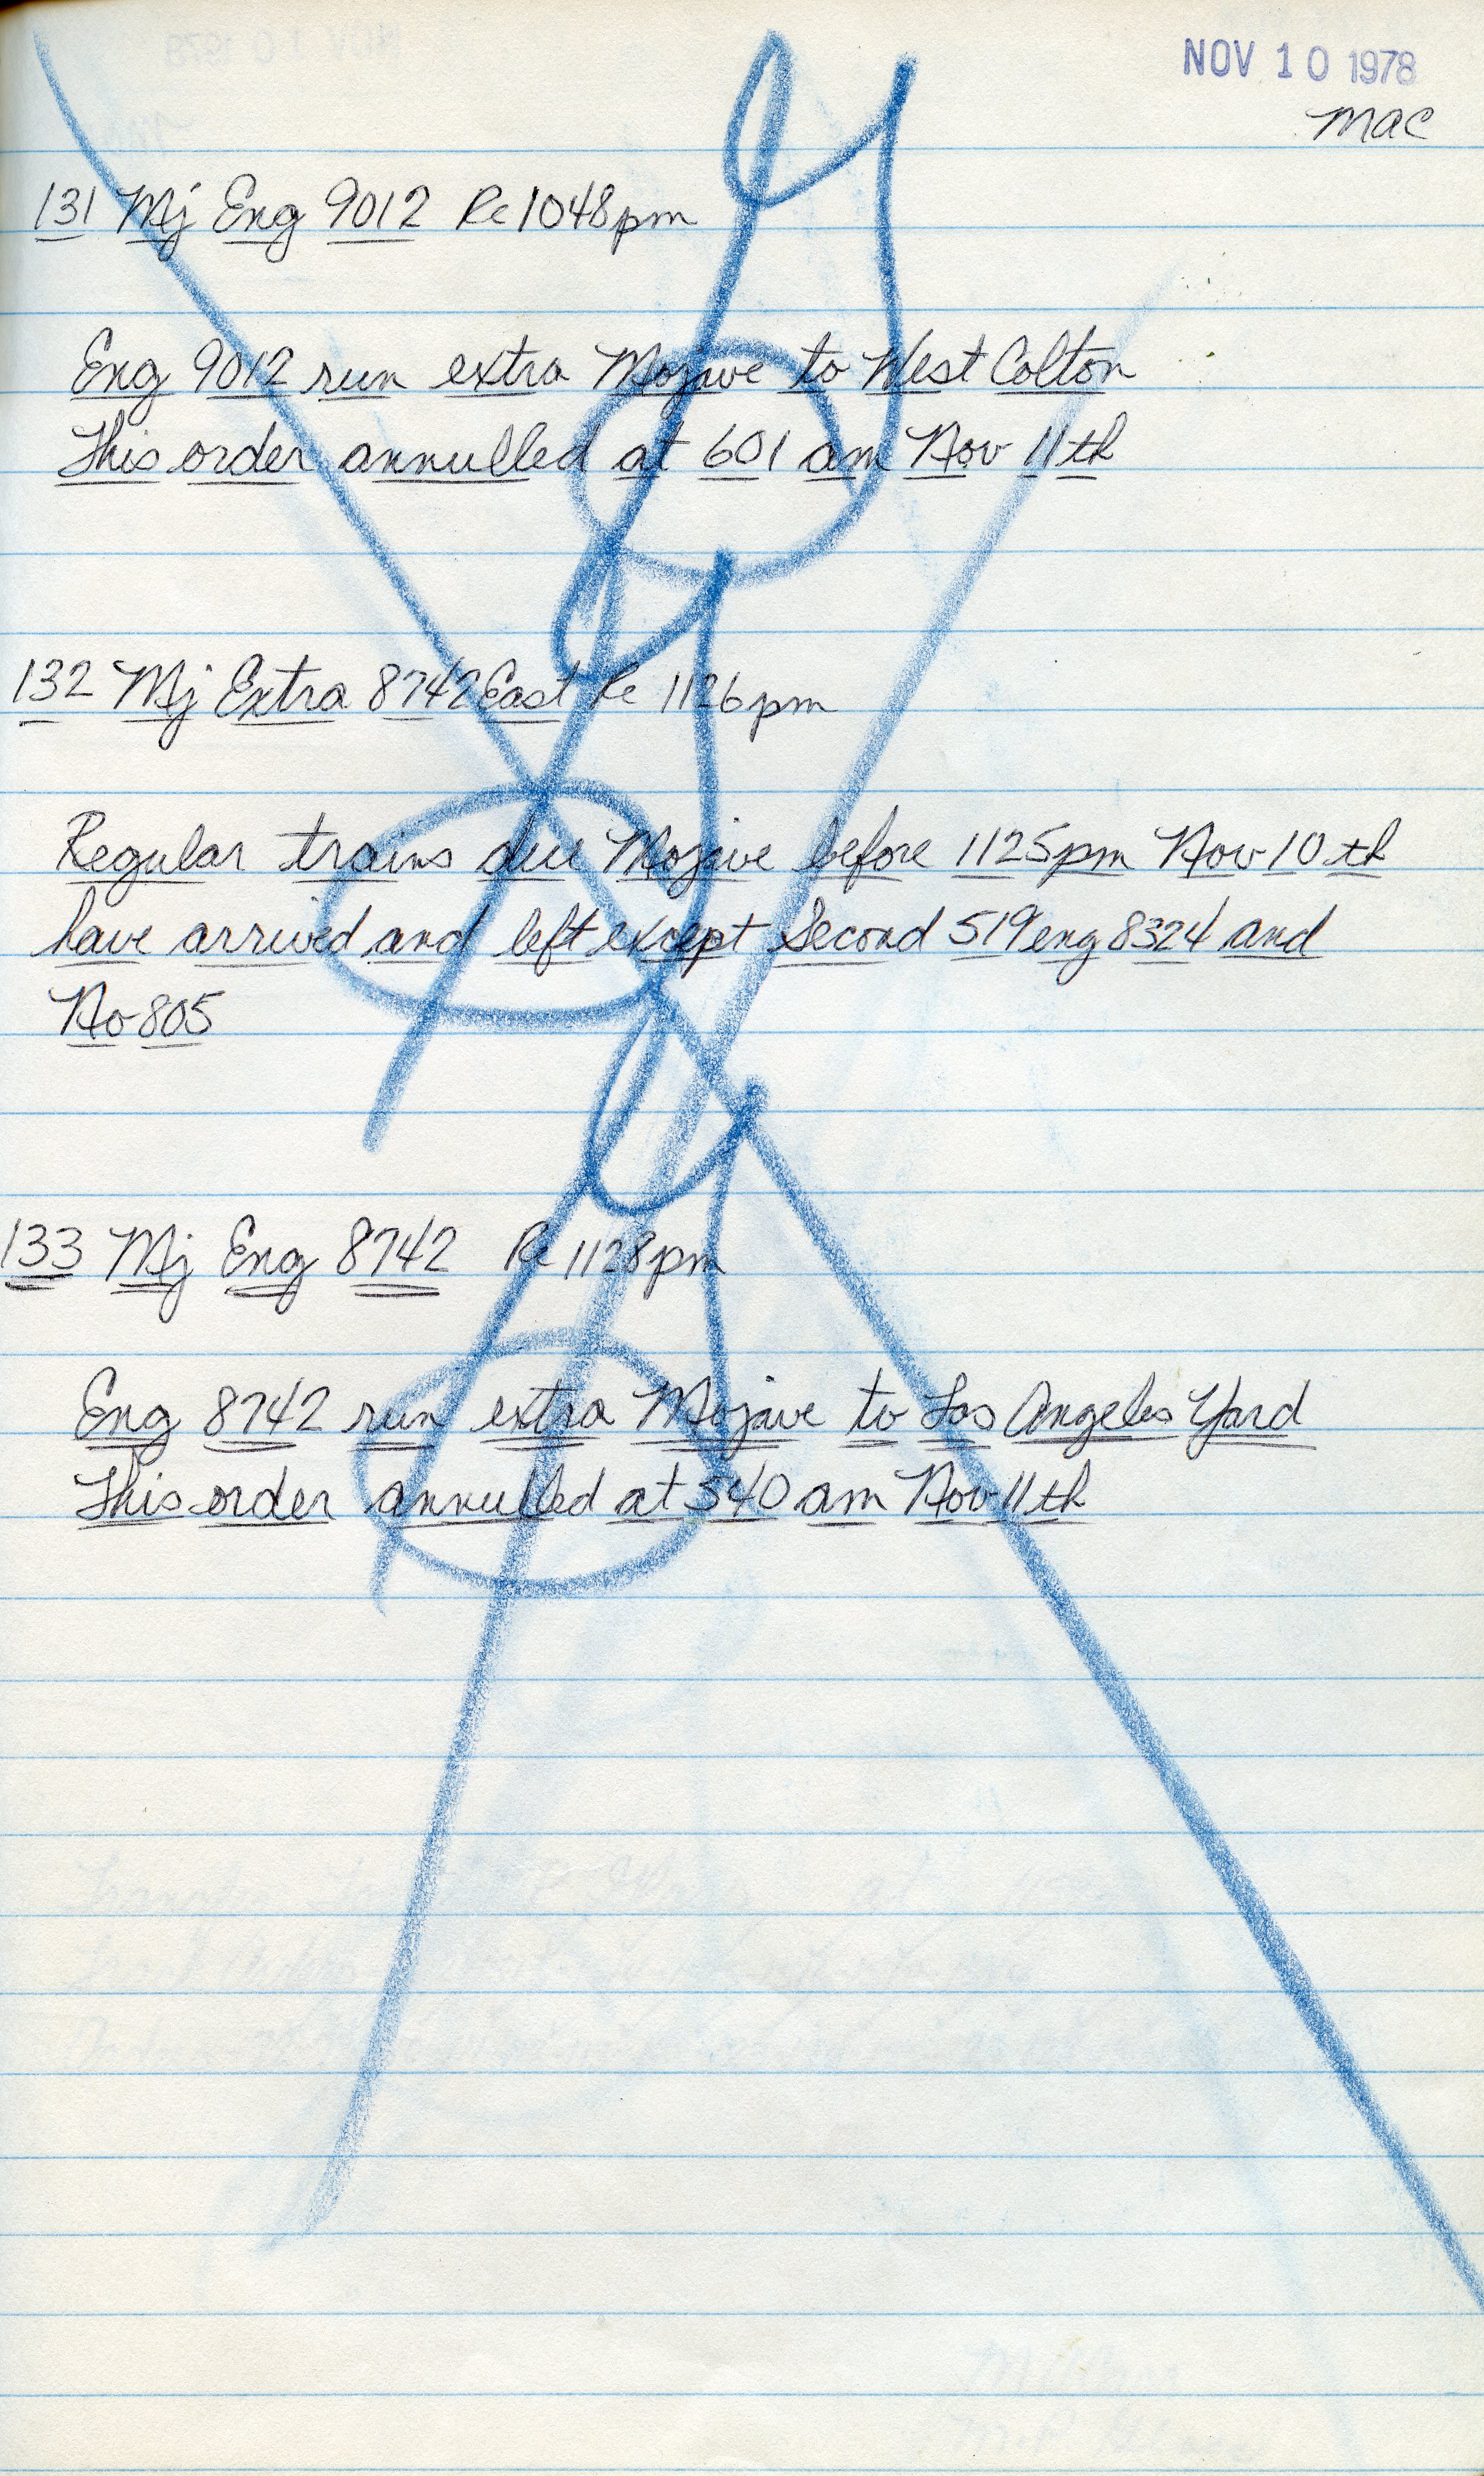 NOV 10 1978
MAC
131 Mj Eng 9012 Rc 1048pm
Eng 9012 run extra Mojave to West Colton
This order annulled at 601 am Nov 11th
132 Mj Extra 8742 East Rc 1126pm
Regular trains due Mojave before 1125pm Nov 10th
have arrived and left except Second 519 eng 8324 and
No 805
133 Mj Eng 8742 Rc 1128pm
Eng 8742 run extra Mojave to Los Angeles Yard
This order annulled at 540 am Nov 11th